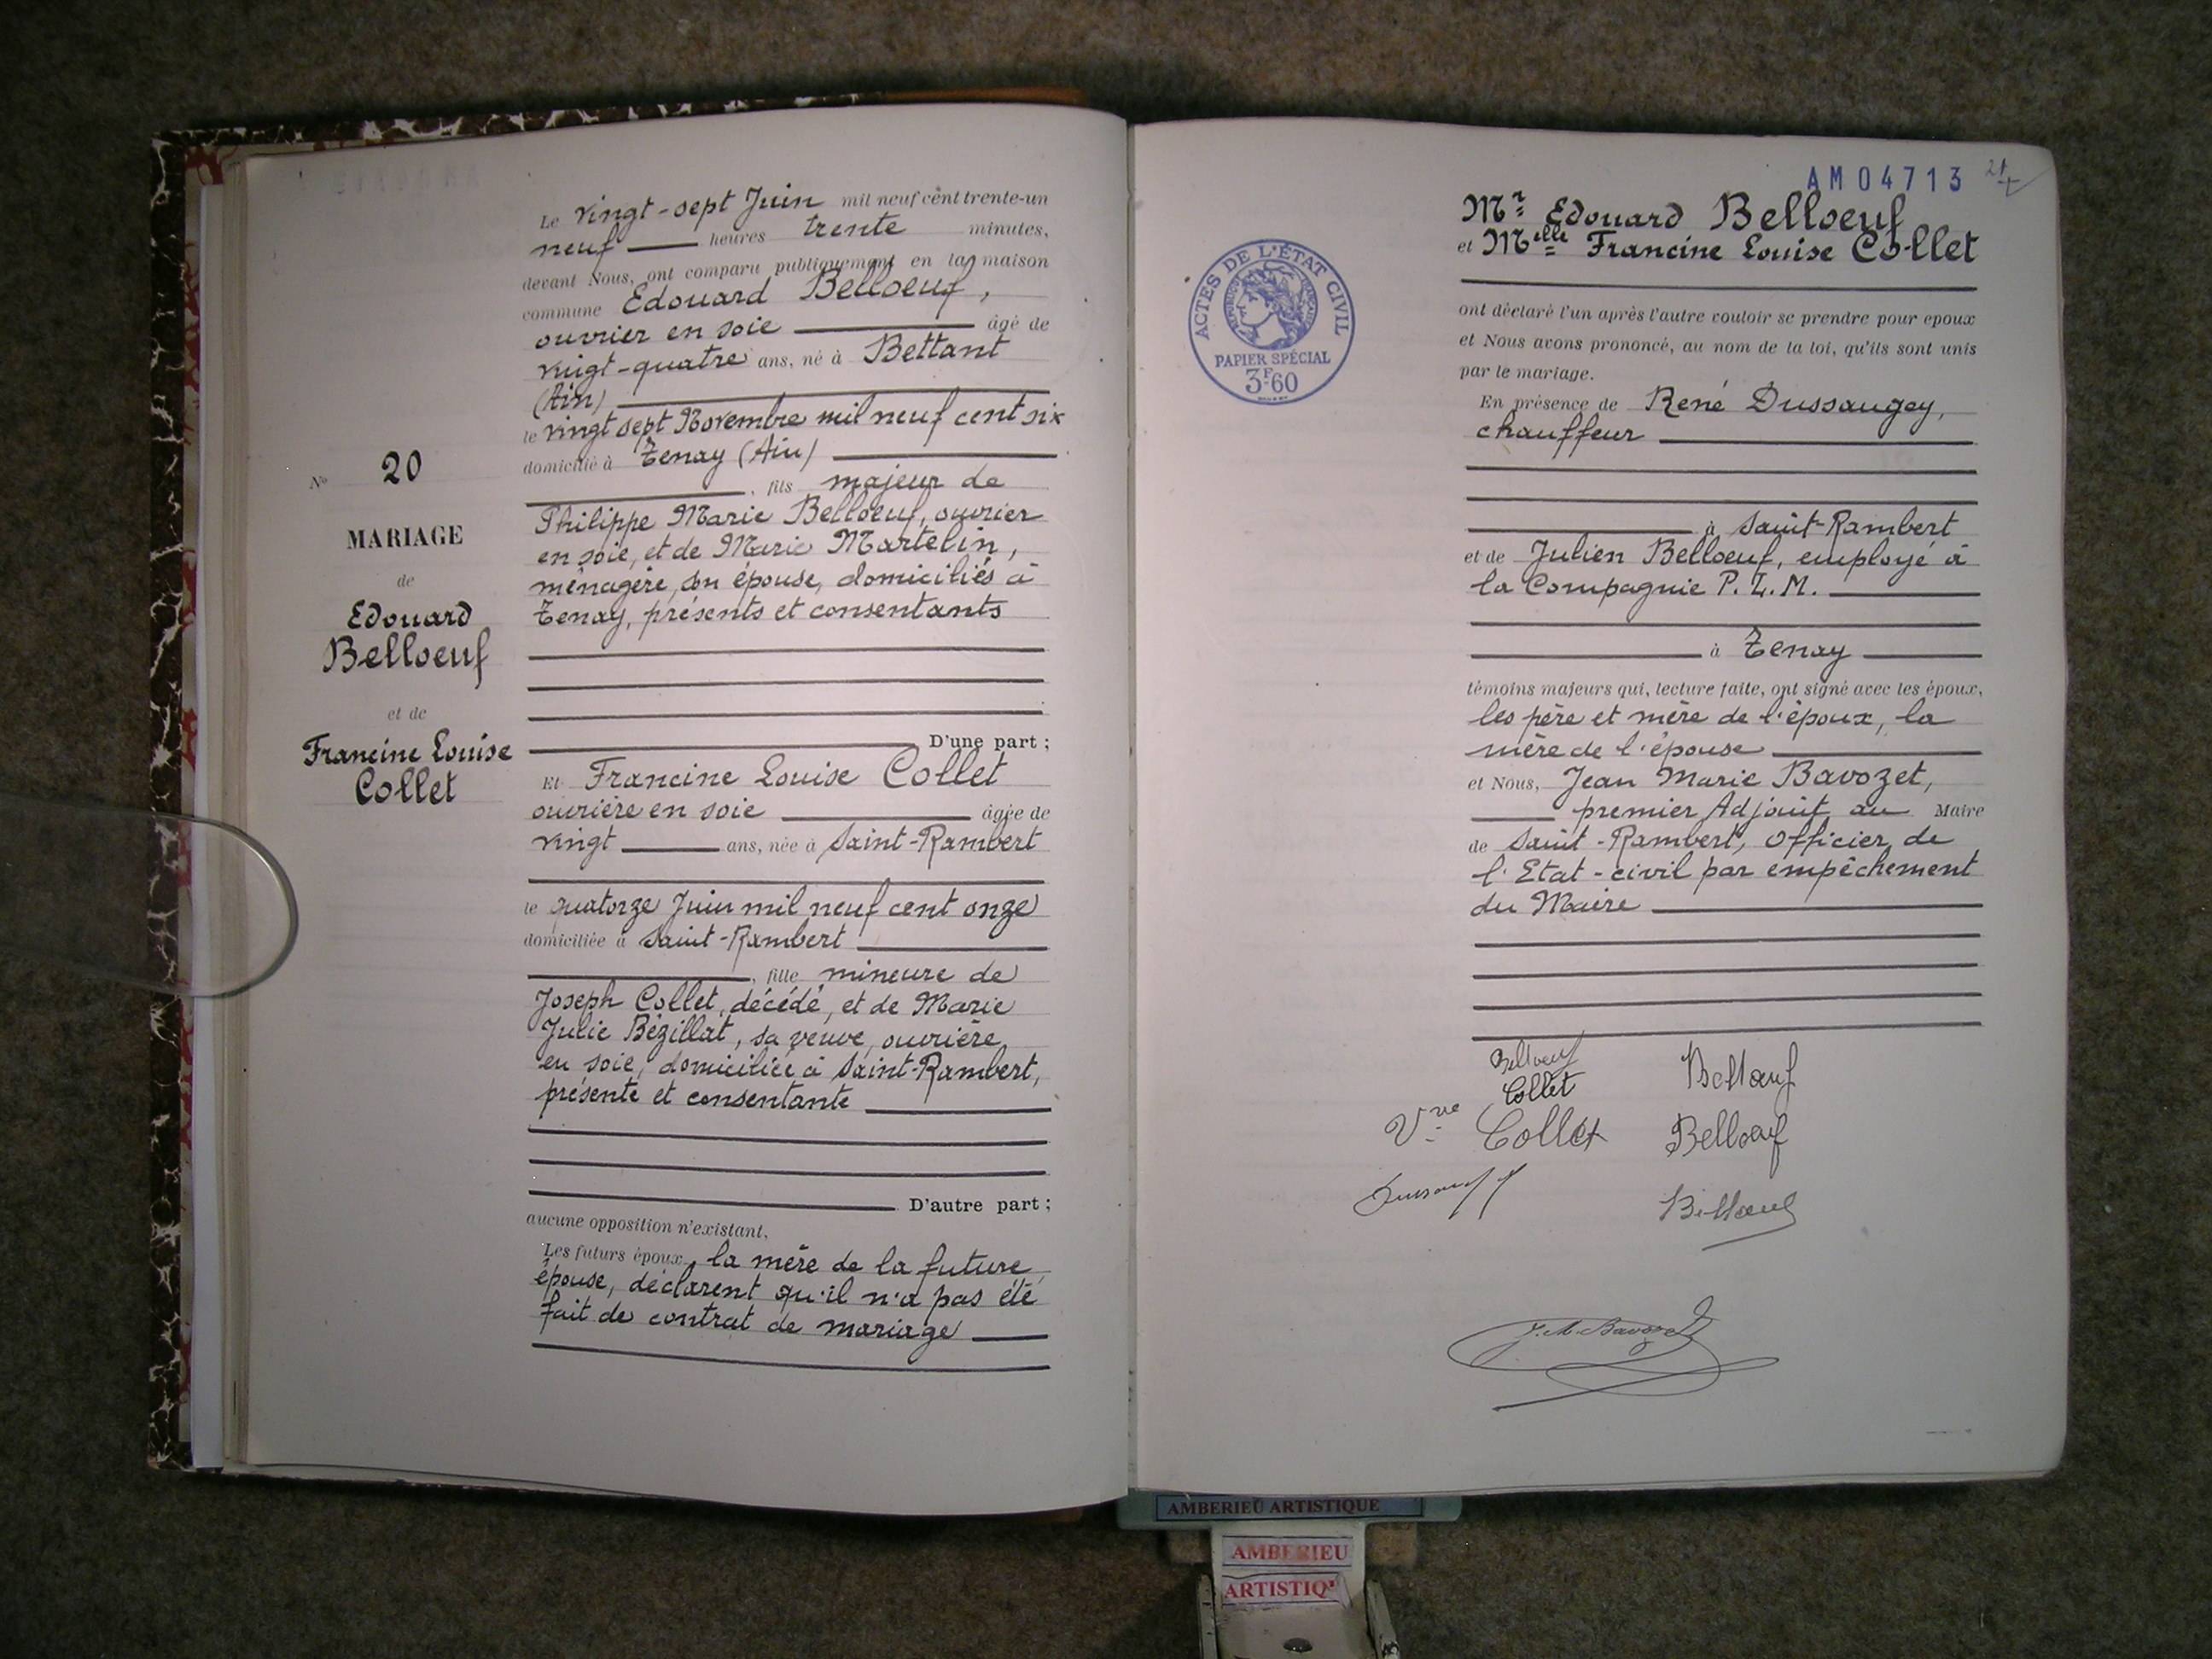 Le vingt-sept Juin mil neuf cent trente-un
neuf heures trente minutes,
devant Nous, ont comparu publiquement en la maison
commune Edouard Belloeuf,
ouvrier en soie âgé de
vingt-quatre ans, né à Bettant
(Ain)
le vingt sept Novembre mil neuf cent six
domicilié à Tenay (Ain)
, fils majeur de
Philippe Marie Belloeuf, ouvrier
en soie, et de Marie Martelin,
ménagère, son épouse, domiciliés à
Tenay, présents et consentants
D'une part ;
Et Francine Louise Collet
ouvrière en soie âgée de
vingt ans, née à Saint-Rambert
le quatorze Juin mil neuf cent onze
domiciliée à Saint-Rambert
, fille mineure de
Joseph Collet, décédé, et de Marie
Julie Bézillat, sa veuve, ouvrière
en soie, domiciliée à Saint-Rambert,
présente et consentante
D'autre part ;
aucune opposition n'existant,
Les futurs époux, la mère de la future
épouse, déclarent qu'il n'a pas été
fait de contrat de mariage
No 20
MARIAGE
de
Edouard
Belloeuf
et de
Francine Louise
Collet
AM04713
ACTES DE L'ÉTAT CIVIL
RÉPUBLIQUE FRANÇAISE
PAPIER SPÉCIAL
3F60
Mr Edouard Belloeuf
et Melle Francine Louise Collet
ont déclaré l'un après l'autre vouloir se prendre pour époux
et Nous avons prononcé, au nom de la loi, qu'ils sont unis
par le mariage.
En présence de René Dussaugey,
chauffeur
à Saint-Rambert
et de Julien Belloeuf, employé à
la Compagnie P.L.M.
à Tenay
témoins majeurs qui, lecture faite, ont signé avec les époux,
les père et mère de l'époux, la
mère de l'épouse
et Nous, Jean Marie Bavozet,
premier Adjoint au Maire
de Saint-Rambert, Officier de
l'Etat-civil par empêchement
du Maire
Belloeuf Belloeuf
Collet
Vve Collet Belloeuf
Belloeuf
J.M. Bavozet
AMBERIEU ARTISTIQUE
AMBERIEU
ARTISTIQ